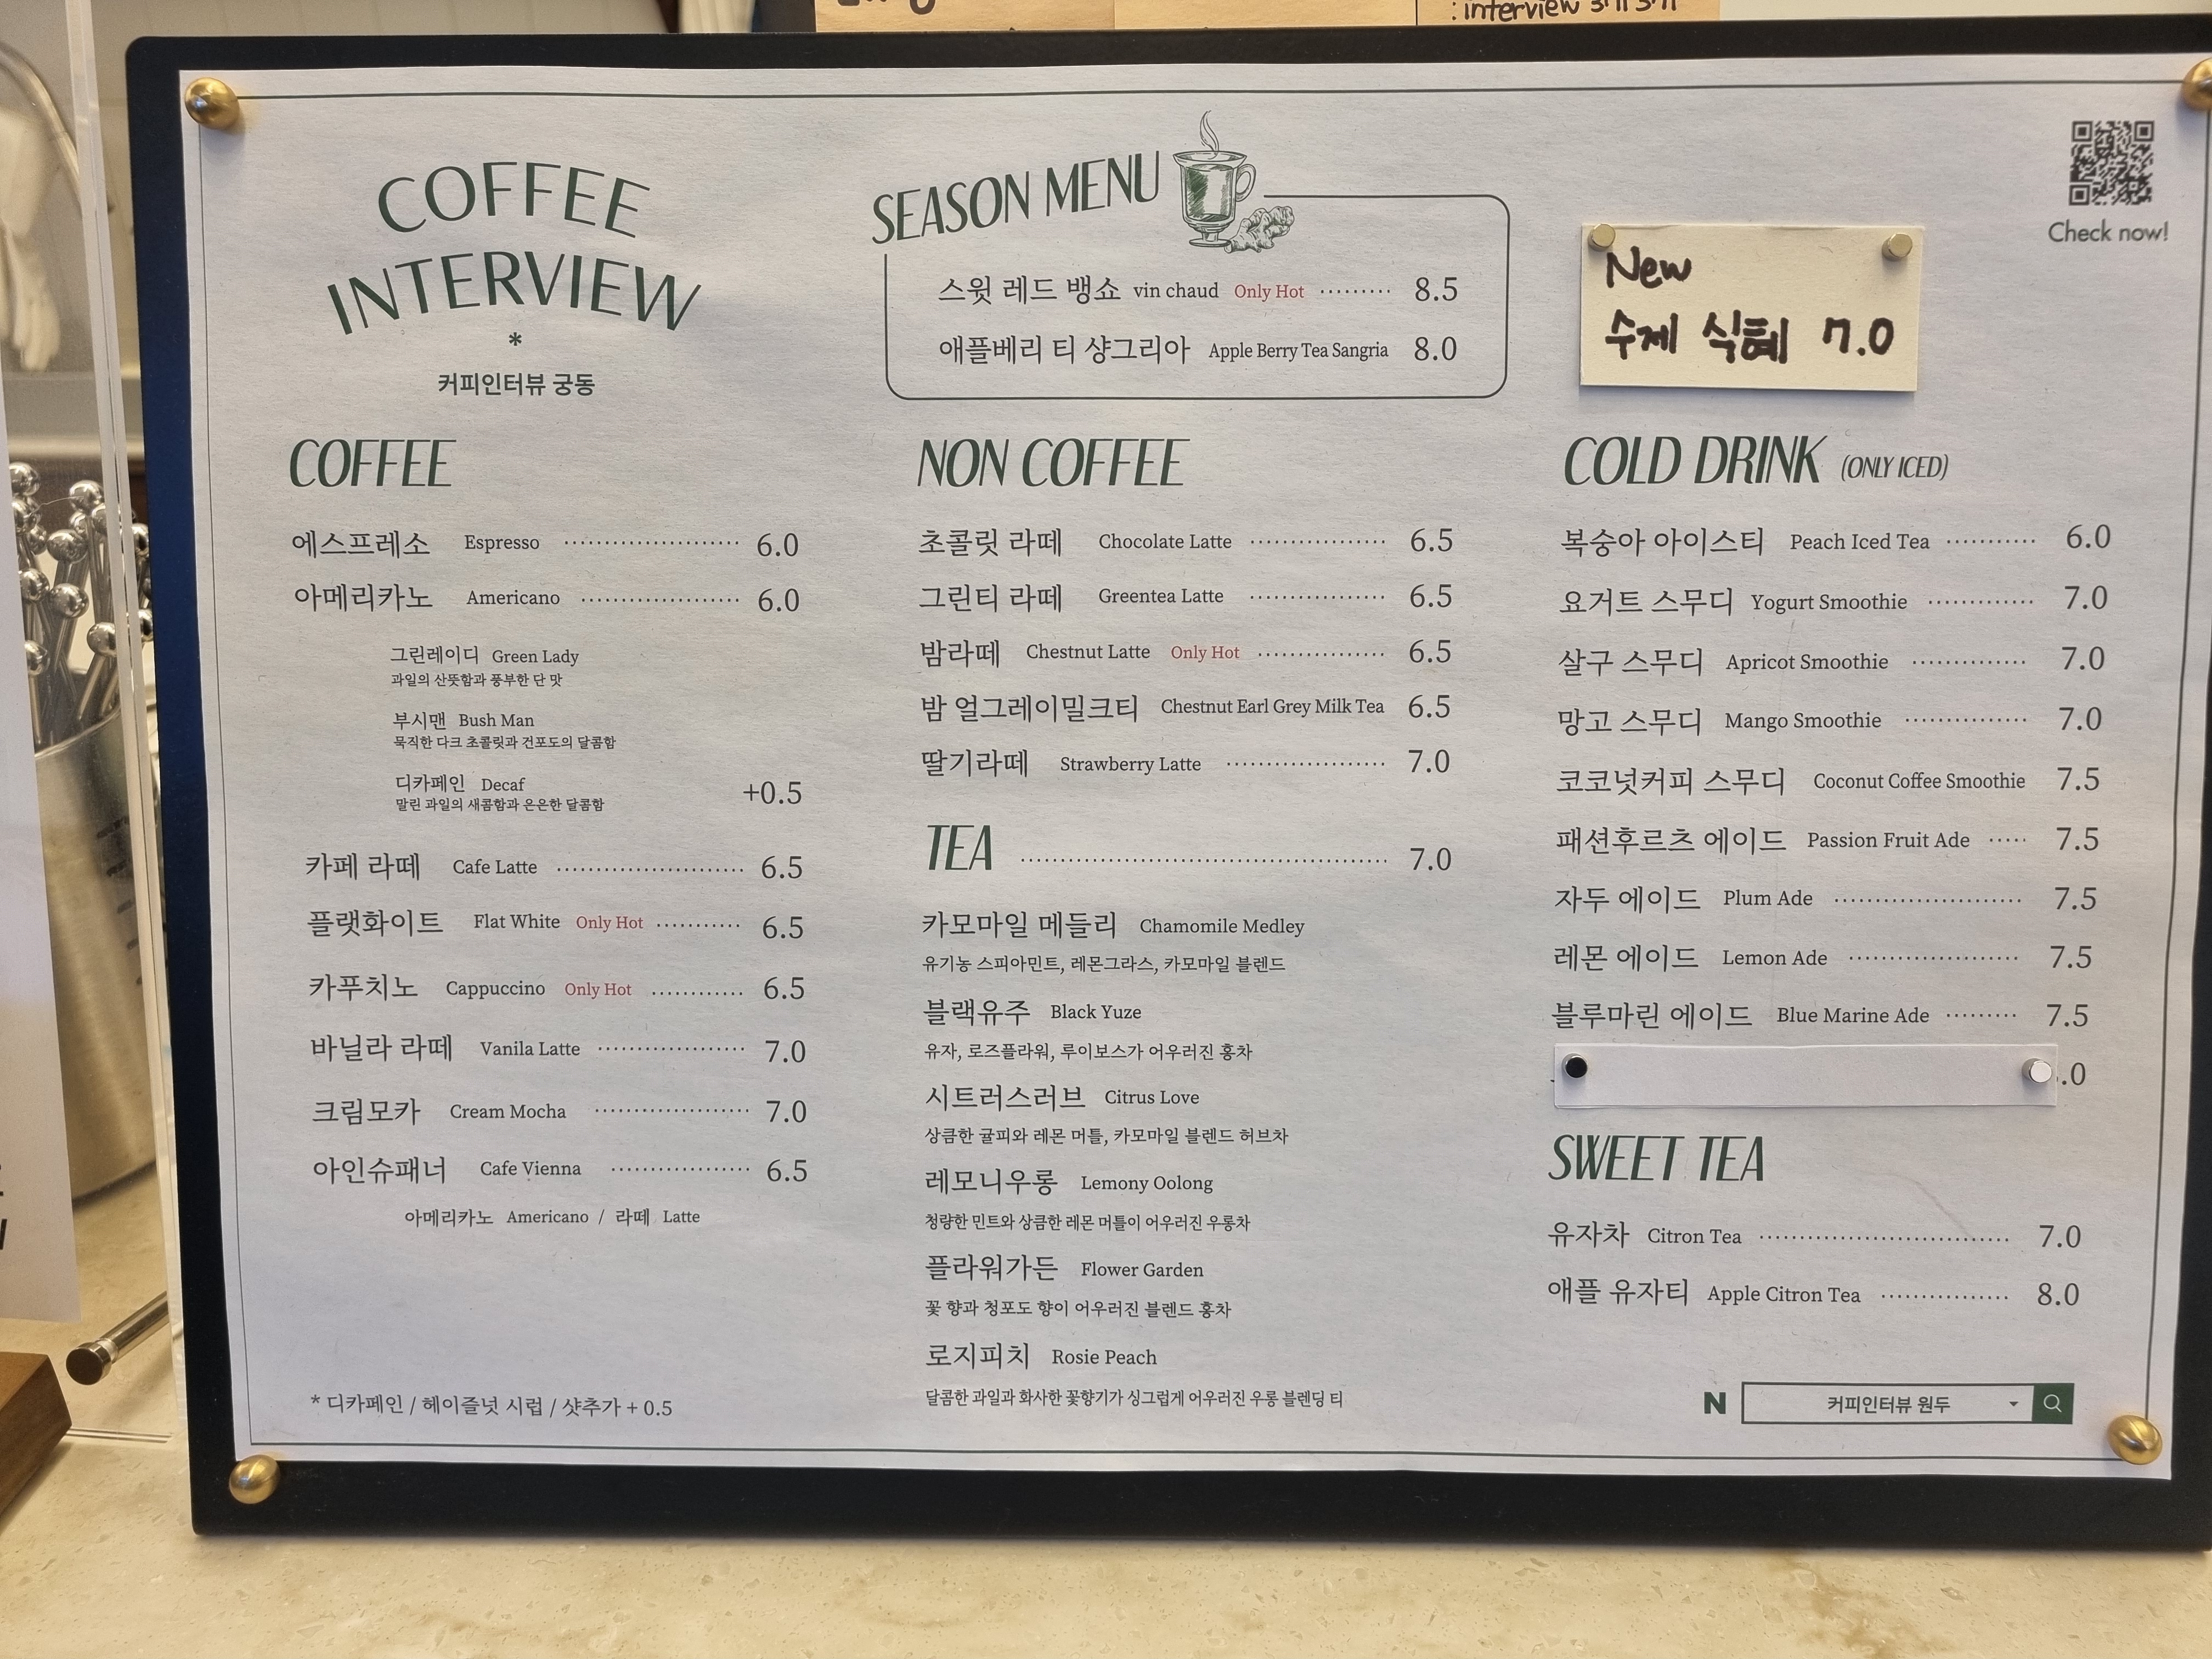 : interview
COFFEE
INTERVIEW
*
커피인터뷰 궁동
SEASON MENU
스윗 레드 뱅쇼 vin chaud Only Hot 8.5
애플베리 티 샹그리아 Apple Berry Tea Sangria 8.0
New
수제 식혜 7.0
Check now!
COFFEE
에스프레소 Espresso 6.0
아메리카노 Americano 6.0
그린레이디 Green Lady
과일의 산뜻함과 풍부한 단 맛
부시맨 Bush Man
묵직한 다크 초콜릿과 건포도의 달콤함
디카페인 Decaf +0.5
말린 과일의 새콤함과 은은한 달콤함
카페 라떼 Cafe Latte 6.5
플랫화이트 Flat White Only Hot 6.5
카푸치노 Cappuccino Only Hot 6.5
바닐라 라떼 Vanila Latte 7.0
크림모카 Cream Mocha 7.0
아인슈패너 Cafe Vienna 6.5
아메리카노 Americano / 라떼 Latte
* 디카페인 / 헤이즐넛 시럽 / 샷추가 + 0.5
NON COFFEE
초콜릿 라떼 Chocolate Latte 6.5
그린티 라떼 Greentea Latte 6.5
밤라떼 Chestnut Latte Only Hot 6.5
밤 얼그레이밀크티 Chestnut Earl Grey Milk Tea 6.5
딸기라떼 Strawberry Latte 7.0
TEA 7.0
카모마일 메들리 Chamomile Medley
유기농 스피아민트, 레몬그라스, 카모마일 블렌드
블랙유주 Black Yuze
유자, 로즈플라워, 루이보스가 어우러진 홍차
시트러스러브 Citrus Love
상큼한 귤피와 레몬 머틀, 카모마일 블렌드 허브차
레모니우롱 Lemony Oolong
청량한 민트와 상큼한 레몬 머틀이 어우러진 우롱차
플라워가든 Flower Garden
꽃 향과 청포도 향이 어우러진 블렌드 홍차
로지피치 Rosie Peach
달콤한 과일과 화사한 꽃향기가 싱그럽게 어우러진 우롱 블렌딩 티
COLD DRINK (ONLY ICED)
복숭아 아이스티 Peach Iced Tea 6.0
요거트 스무디 Yogurt Smoothie 7.0
살구 스무디 Apricot Smoothie 7.0
망고 스무디 Mango Smoothie 7.0
코코넛커피 스무디 Coconut Coffee Smoothie 7.5
패션후르츠 에이드 Passion Fruit Ade 7.5
자두 에이드 Plum Ade 7.5
레몬 에이드 Lemon Ade 7.5
블루마린 에이드 Blue Marine Ade 7.5
.0
SWEET TEA
유자차 Citron Tea 7.0
애플 유자티 Apple Citron Tea 8.0
N 커피인터뷰 원두